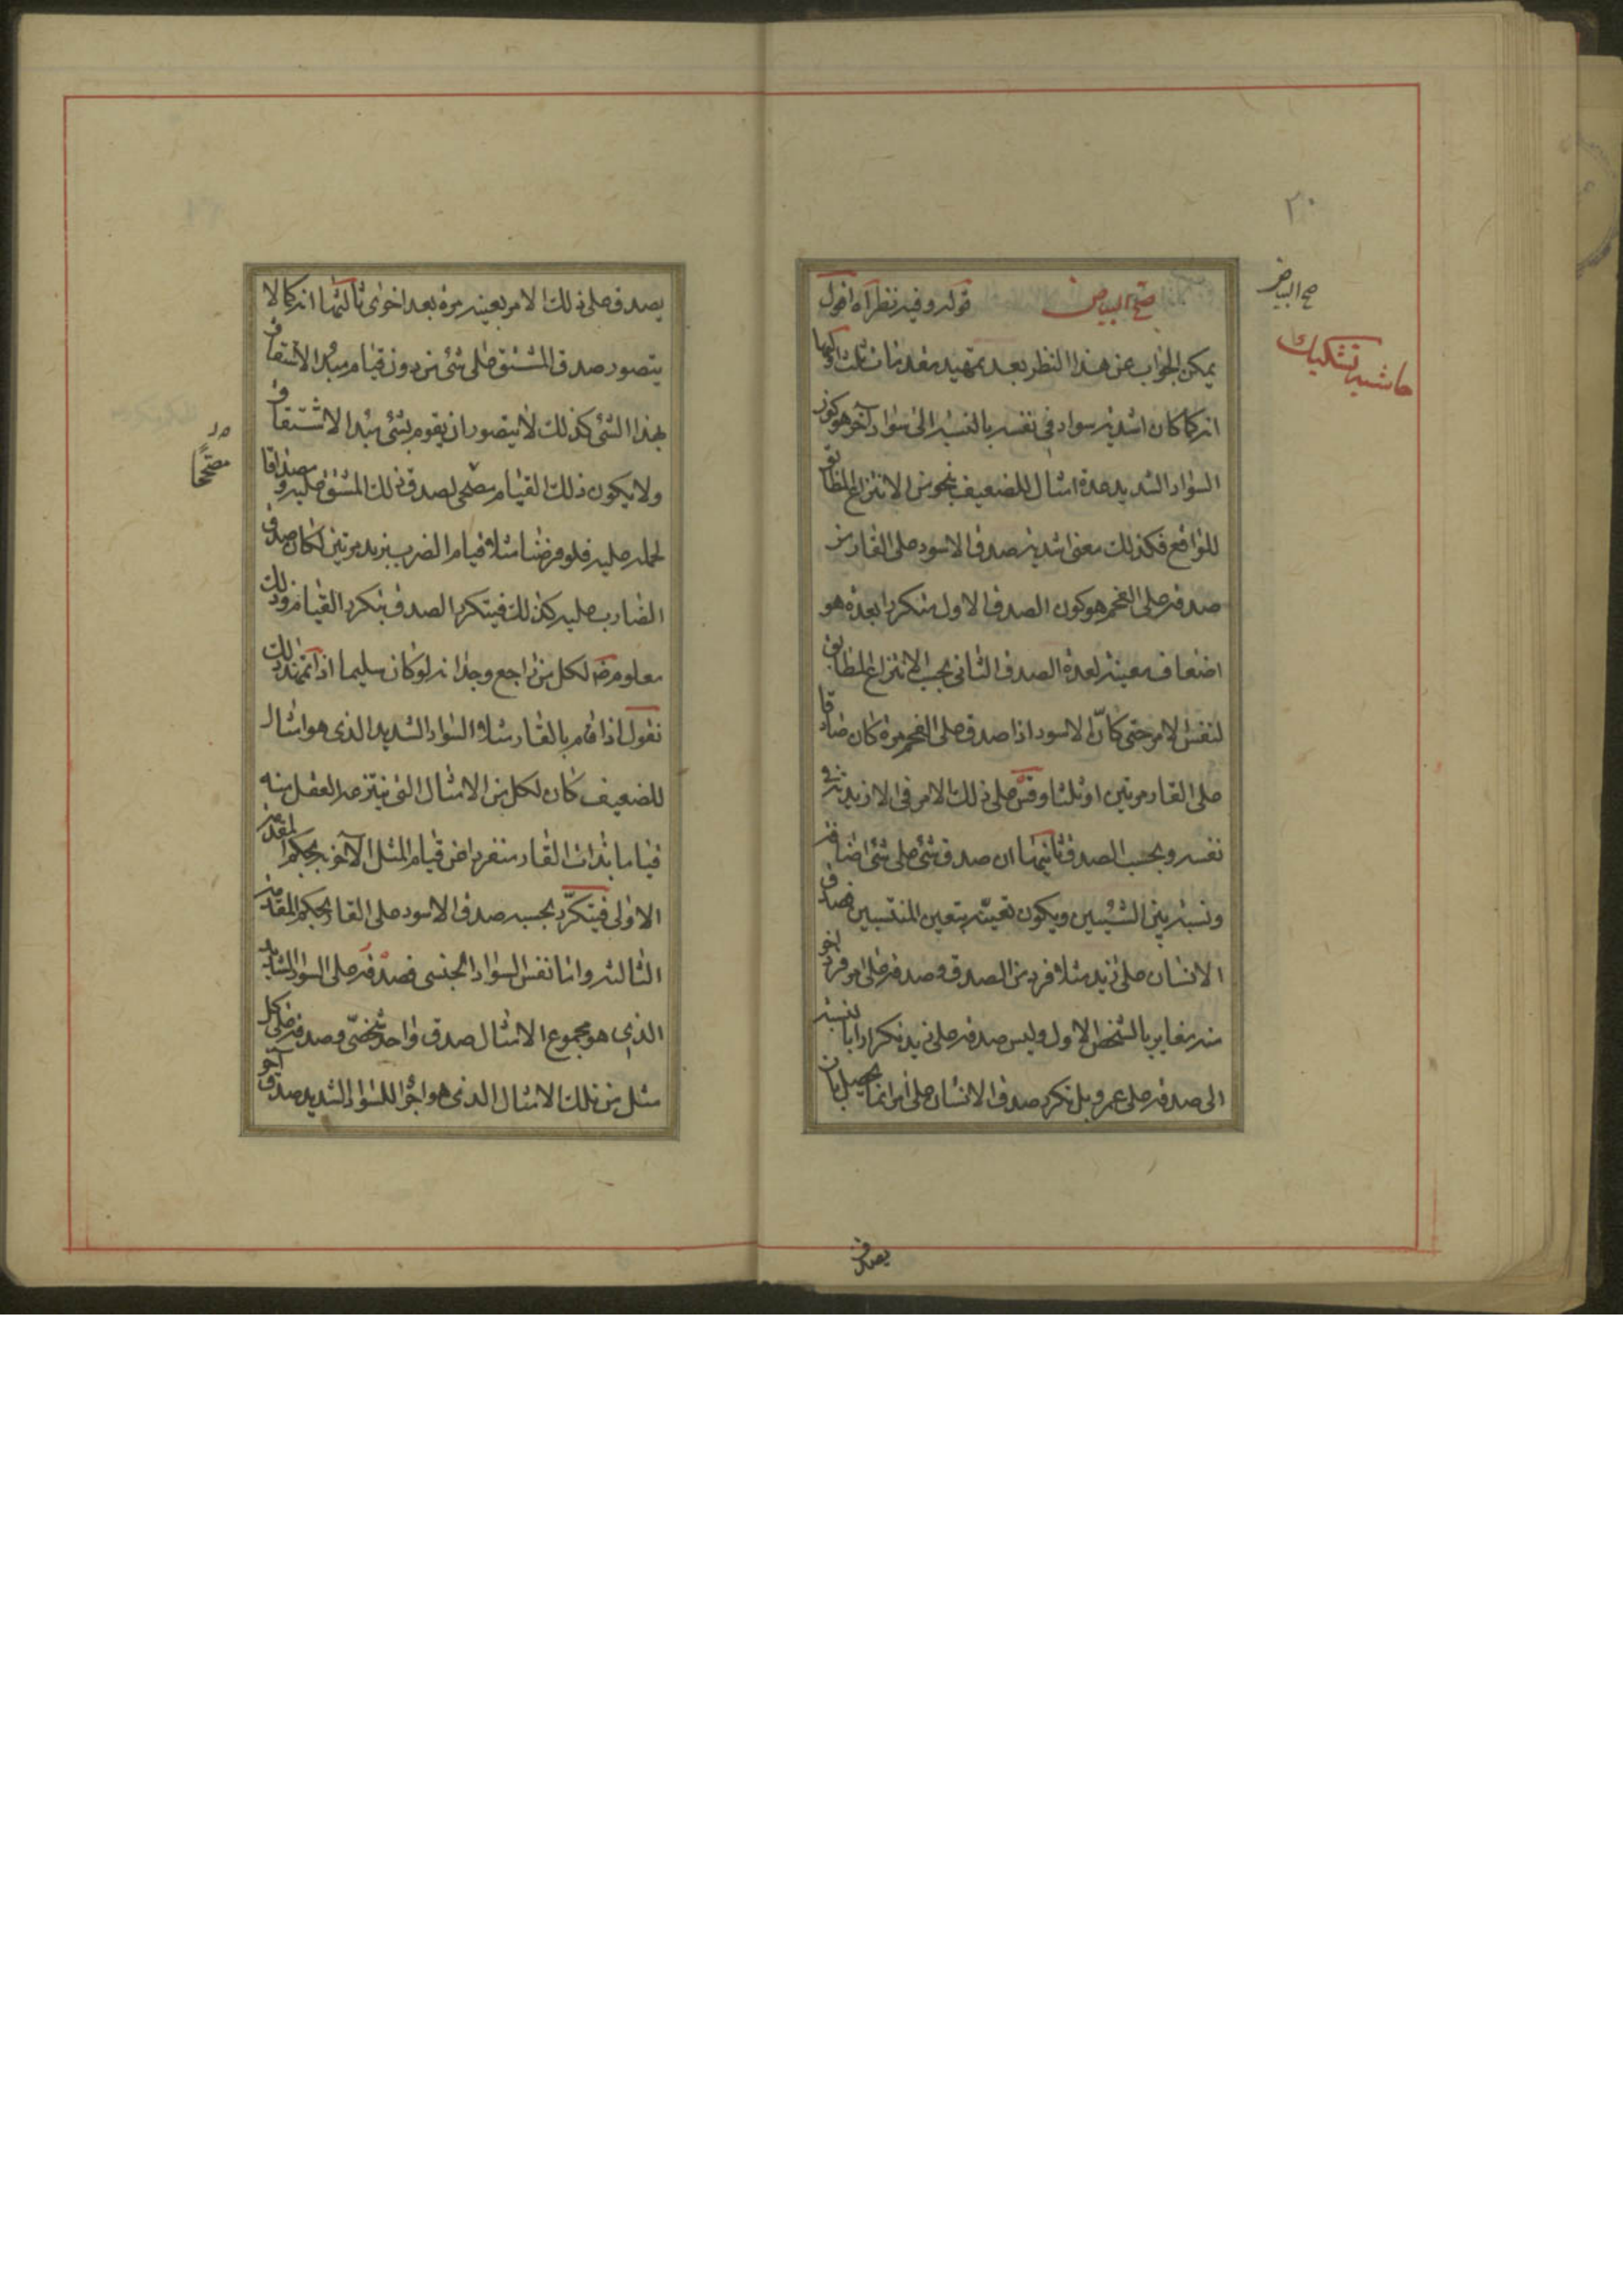 ٢٠
صح البياض
حاشية تشكيك
صح البياض قوله وفيه نظر آه اقول
يمكن الجواب عن هذا النظر بعد تمهيد مقدمات ثلث اولها
انه كما كان اشدية سواد في نفسه بالنسبة الى سواد آخر هو كون
السواد الشديد عدة امثال للضعيف بنحو من الانتزاع المطابق
للواقع فكذلك معنى اشدية صدق الاسود على القار من
صدقه على الفحم هو كون الصدق الاول متكررا بعدة هو
اضعاف معينة لعدة الصدق الثاني بحسب الانتزاع المطابق
لنفس الامر حتى كانّ الاسود اذا صدق على الفحم مرة كان صادقا
على القار مرتين او ثلثا وقس على ذلك الامر في الازيدية في
نفسه وبحسب الصدق ثانيها ان صدق شئ على شئ اضافة
ونسبة بين الشيئين ويكون تعينه بتعين المنتسبين فصدق
الانسان على زيد مثلا فرد من الصدق وصدقه على عمرو فرد آخر
منه مغاير بالشخص الاول وليس صدقه على زيد تكرارا بالنسبة
الى صدقه على عمرو بل تكرر صدق الانسان على امر انما يحصل بان
يصدق
يصدق على ذلك الامر بعينه مرة بعد اخرى ثالثها انه كما لا
يتصور صدق المشتق على شئ من دون قيام مبدء الاشتقاق
بهذا الشئ كذلك لا يتصور ان يقوم بشئ مبدا الاشتقاق
ولا يكون ذلك القيام مصححا لصدق ذلك المشتق عليه ومصداقا
لحمله عليه فلو فرضنا مثلا قيام الضرب بزيد مرتين لكان صدق
الضارب عليه كذلك فيتكرر الصدق بتكرر القيام وذلك
معلوم لكل من راجع وجدانه لو كان سليما اذا تمهد ذلك
نقول اذا قام بالقار مثلا السواد الشديد الذى هو امثال
للضعيف كان لكل من الامثال التى ينتزعه العقل منه
قياما بذات القار منفردا عن قيام المثل الآخر بحكم المقدمة
الاولى فيتكرّر بحسبه صدق الاسود على القار بحكم المقدمة
الثالثة واما نفس السواد الجنسى فصدقه على السواد الشديد
الذى هو مجموع الامثال صدق واحد شخصىّ وصدقه على كل
مثل من تلك الامثال الذى هو اجزا للسواد الشديد صدق آخر
مصححا